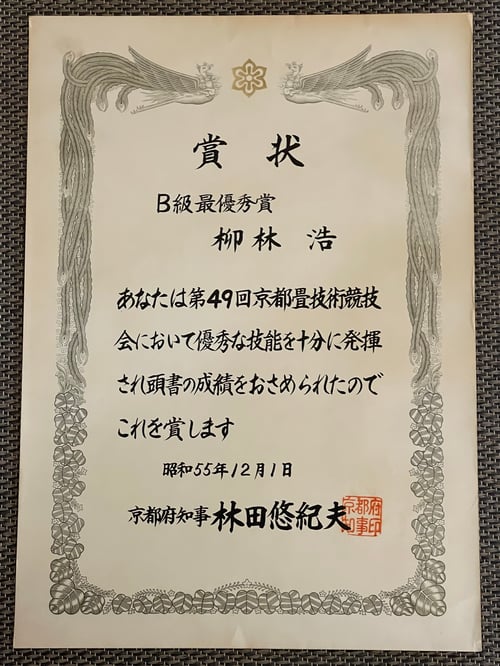 賞状
B級最優秀賞
柳林浩
あなたは第49回京都畳技術競技
会において優秀な技能を十分に発揮
され頭書の成績をおさめられたので
これを賞します
昭和55年12月1日
京都府知事 林田悠紀夫
京都府知事印